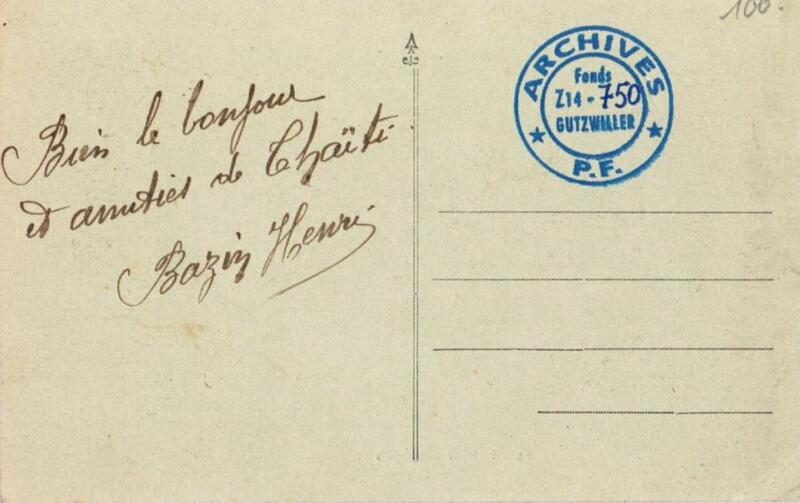 Bien le bonjour
et amitiés de Thaïti
Bazin Henri
100.
ARCHIVES
Fonds
Z14 - 750
GUTZWILLER
★ P.F. ★